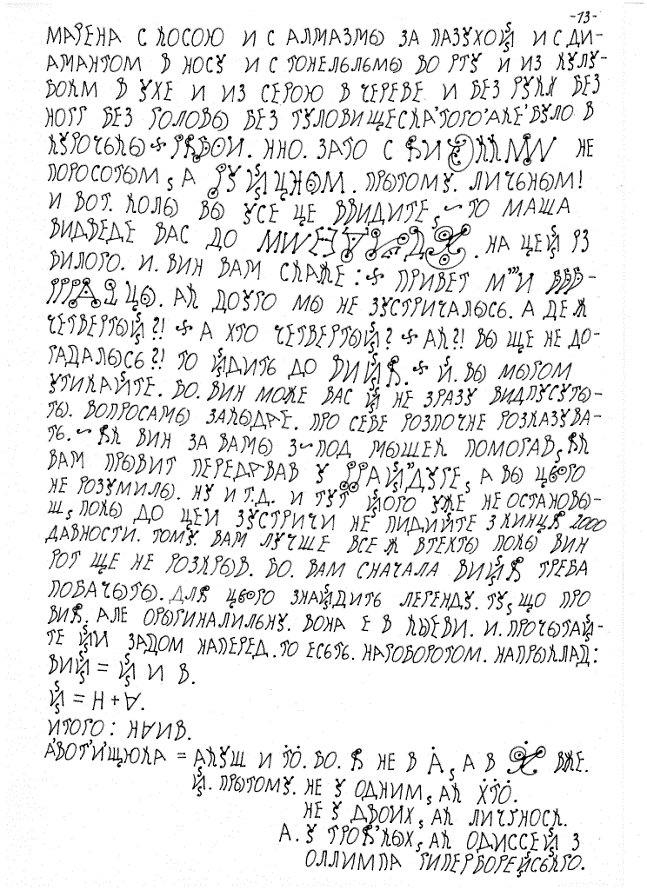 -13-
МАРЕНА С КОСОЮ И С АЛМАЗМЫ ЗА ПАЗУХОЙ И С ДИ-
АМАНТОМ В НОСУ И С ТОНЕЛЬЛЬМЫ ВО РТУ И ИЗ КУЛУ-
БОКМ В УХЕ И ИЗ СЕРОЮ В ЧЕРЕВЕ И БЕЗ РУКК БЕЗ
НОГГ БЕЗ ГОЛОВЫ БЕЗ ТУЛОВИЩЕСКА'ТОГО'АКЕ'БУЛО В
КУРОЧКЫ ННО. ЗАТО С НЕ
ПОРОСОТЫМ, А ПРЫТОМУ. ЛИЧЬНЫМ!
И ВОТ. КОЛЫ ВЫ УСЕ ЦЕ ВВИДИТЕ, ТО МАША
ВИДВЕДЕ ВАС ДО НА ЦЕЙ РЗ
ВИЛОГО. И. ВИН ВАМ СКАЖЕ: ПРИВЕТ
АК ДОУГО МЫ НЕ ЗУСТРИЧАЛЫСЬ. А ДЕ Ж
ЧЕТВЕРТЫЙ?! А ХТО ЧЕТВЕРТЫЙ? АК?! ВЫ ЩЕ НЕ ДО-
ГАДАЛЫСЬ?! ТО ЙДИТЬ ДО ВИЙЯ. Й. ВЫ МЫГОМ
УТИКАЙТЕ. БО. ВИН МОЖЕ ВАС Й НЕ ЗРАЗУ ВИДПУСУТЫ-
ТЫ. ВОПРОСАМЫ ЗАКЫДАЕ. ПРО СЕБЕ РОЗПОЧНЕ РОЗКАЗУВА-
ТЬ. ЯК ВИН ЗА ВАМЫ З ПОД МЫШЕК ПОМОГАВ, ЯК
ВАМ ПРЫВИТ ПЕРЕДАВАВ У А ВЫ ЦЬОГО
НЕ РОЗУМИЛЫ. НУ И Т.Д. И ТУТ ЙОГО УЖЕ НЕ ОСТАНОВЫ-
Ш, ПОКЫ ДО ЦЕИ ЗУСТРИЧИ НЕ ПИДИЙТЕ З КИНЦЯ 2000
ДАВНОСТИ. ТОМУ ВАМ ЛУЧШЕ ВСЕ Ж ВТЕКТЫ ПОКЫ ВИН
РОТ ЩЕ НЕ РОЗКРЫВ. БО. ВАМ СНАЧАЛА ВИЙЯ ТРЕБА
ПОБАЧЫТЫ. ДЛЯ ЦЬОГО ЗНАЙДИТЬ ЛЕГЕНДУ. ТУ, ЩО ПРО
ВИЯ. АЛЕ ОРЫГИНАЛИЛЬНУ. ВОНА Е В КЫЕВИ. И. ПРОЧЫТАЙ-
ТЕ ЙИ ЗАДОМ НАПЕРЕД. ТО ЕСЬТЬ. НАОБОРОТОМ. НАПРЫКЛАД:
ВИЙ = Й И В.
Й = Н + ∀.
ИТОГО: Н∀ИВ.
А'ВОТ'И'ЩЮКА = АКУШ И ТО. БО. Я НЕ В А, А В ВЖЕ.
Й. ПРЫТОМУ. НЕ У ОДНИМ, АК ХТО.
НЕ У ДВОИХ, АК ЛИЧУНОСК.
А. У ТРОЯ'КЫХ, АК ОДИССЕЙ З
ОЛЛИМПА ГИПЕРБОРЕЙСЬКГО.